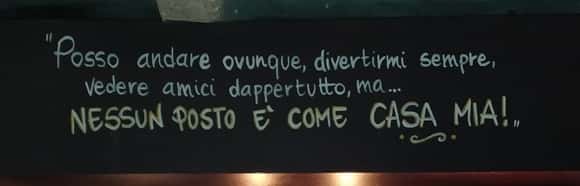 "Posso andare ovunque, divertirmi sempre,
vedere amici dappertutto, ma...
NESSUN POSTO E' COME CASA MIA!„